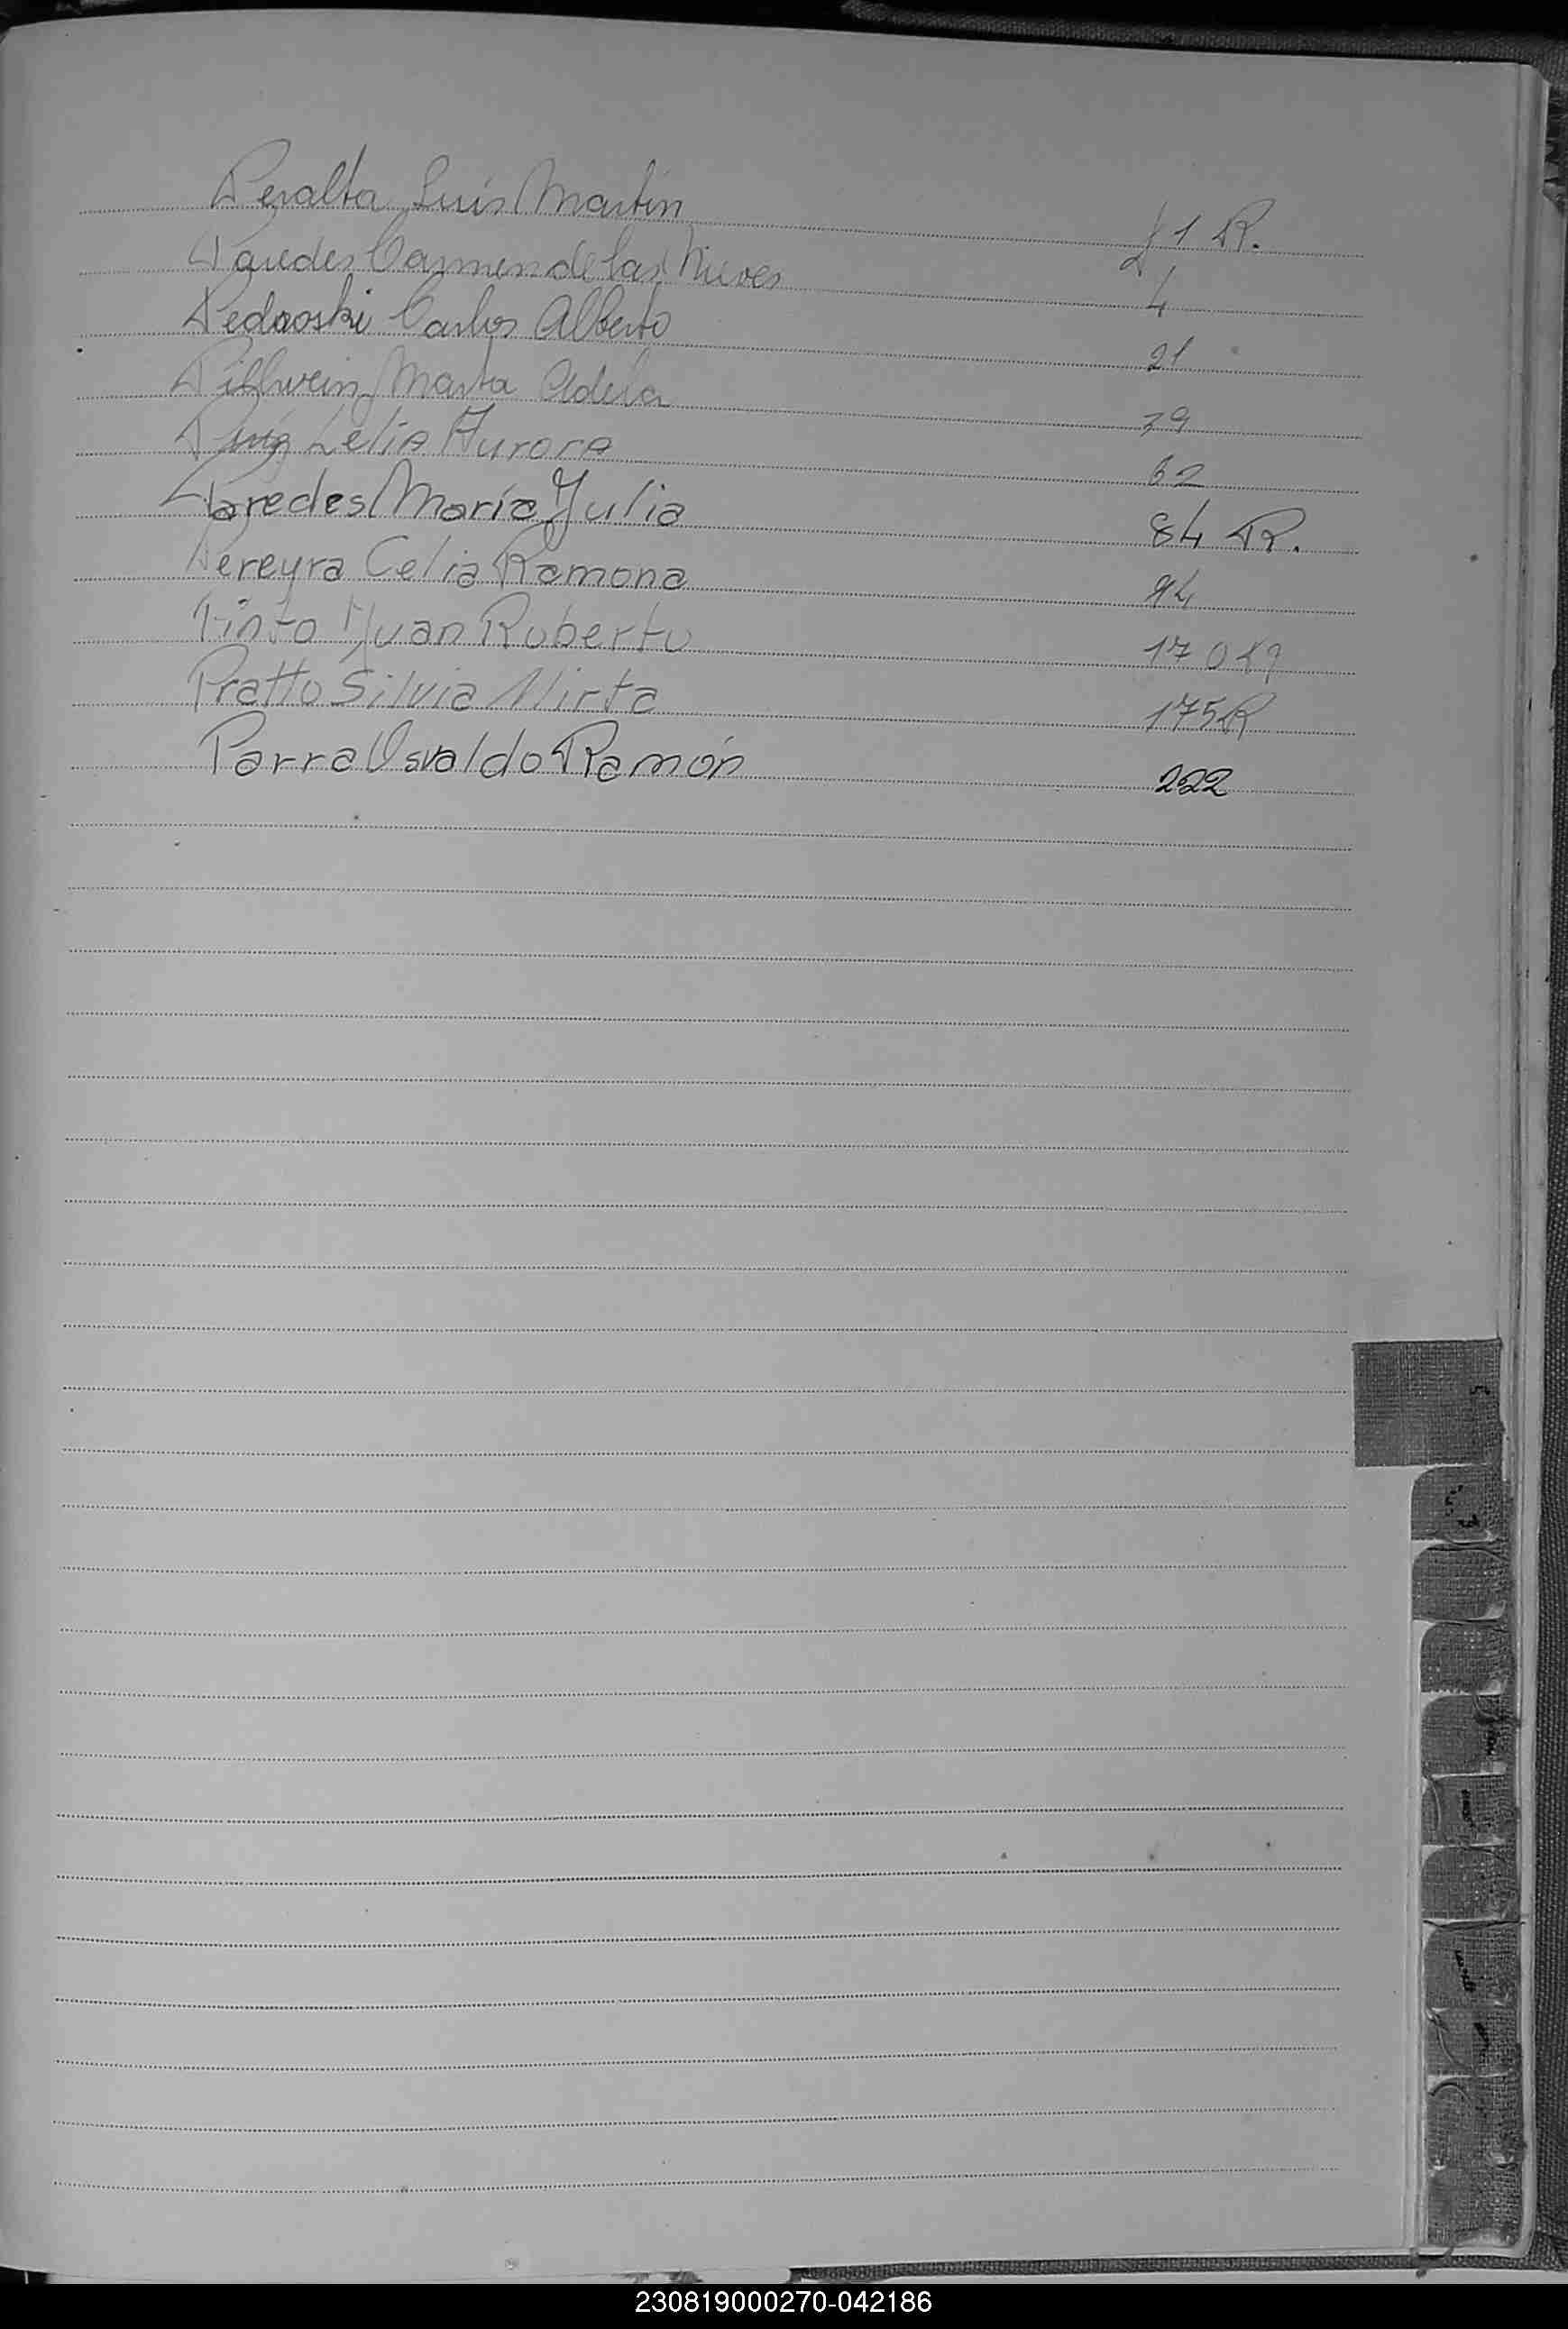 Peralta Luis Martín 1 R.
Paredes Carmen de las Nieves 4
Pedroski Carlos Alberto 21
Pillwein Marta Adela 39
Puig Lelia Aurora 62
Paredes María Julia 84 R.
Pereyra Celia Ramona 94
Pinto Juan Roberto 17
Pratto Silvia Mirta 175 R
Parra Osvaldo Ramón 222
230819000270-042186